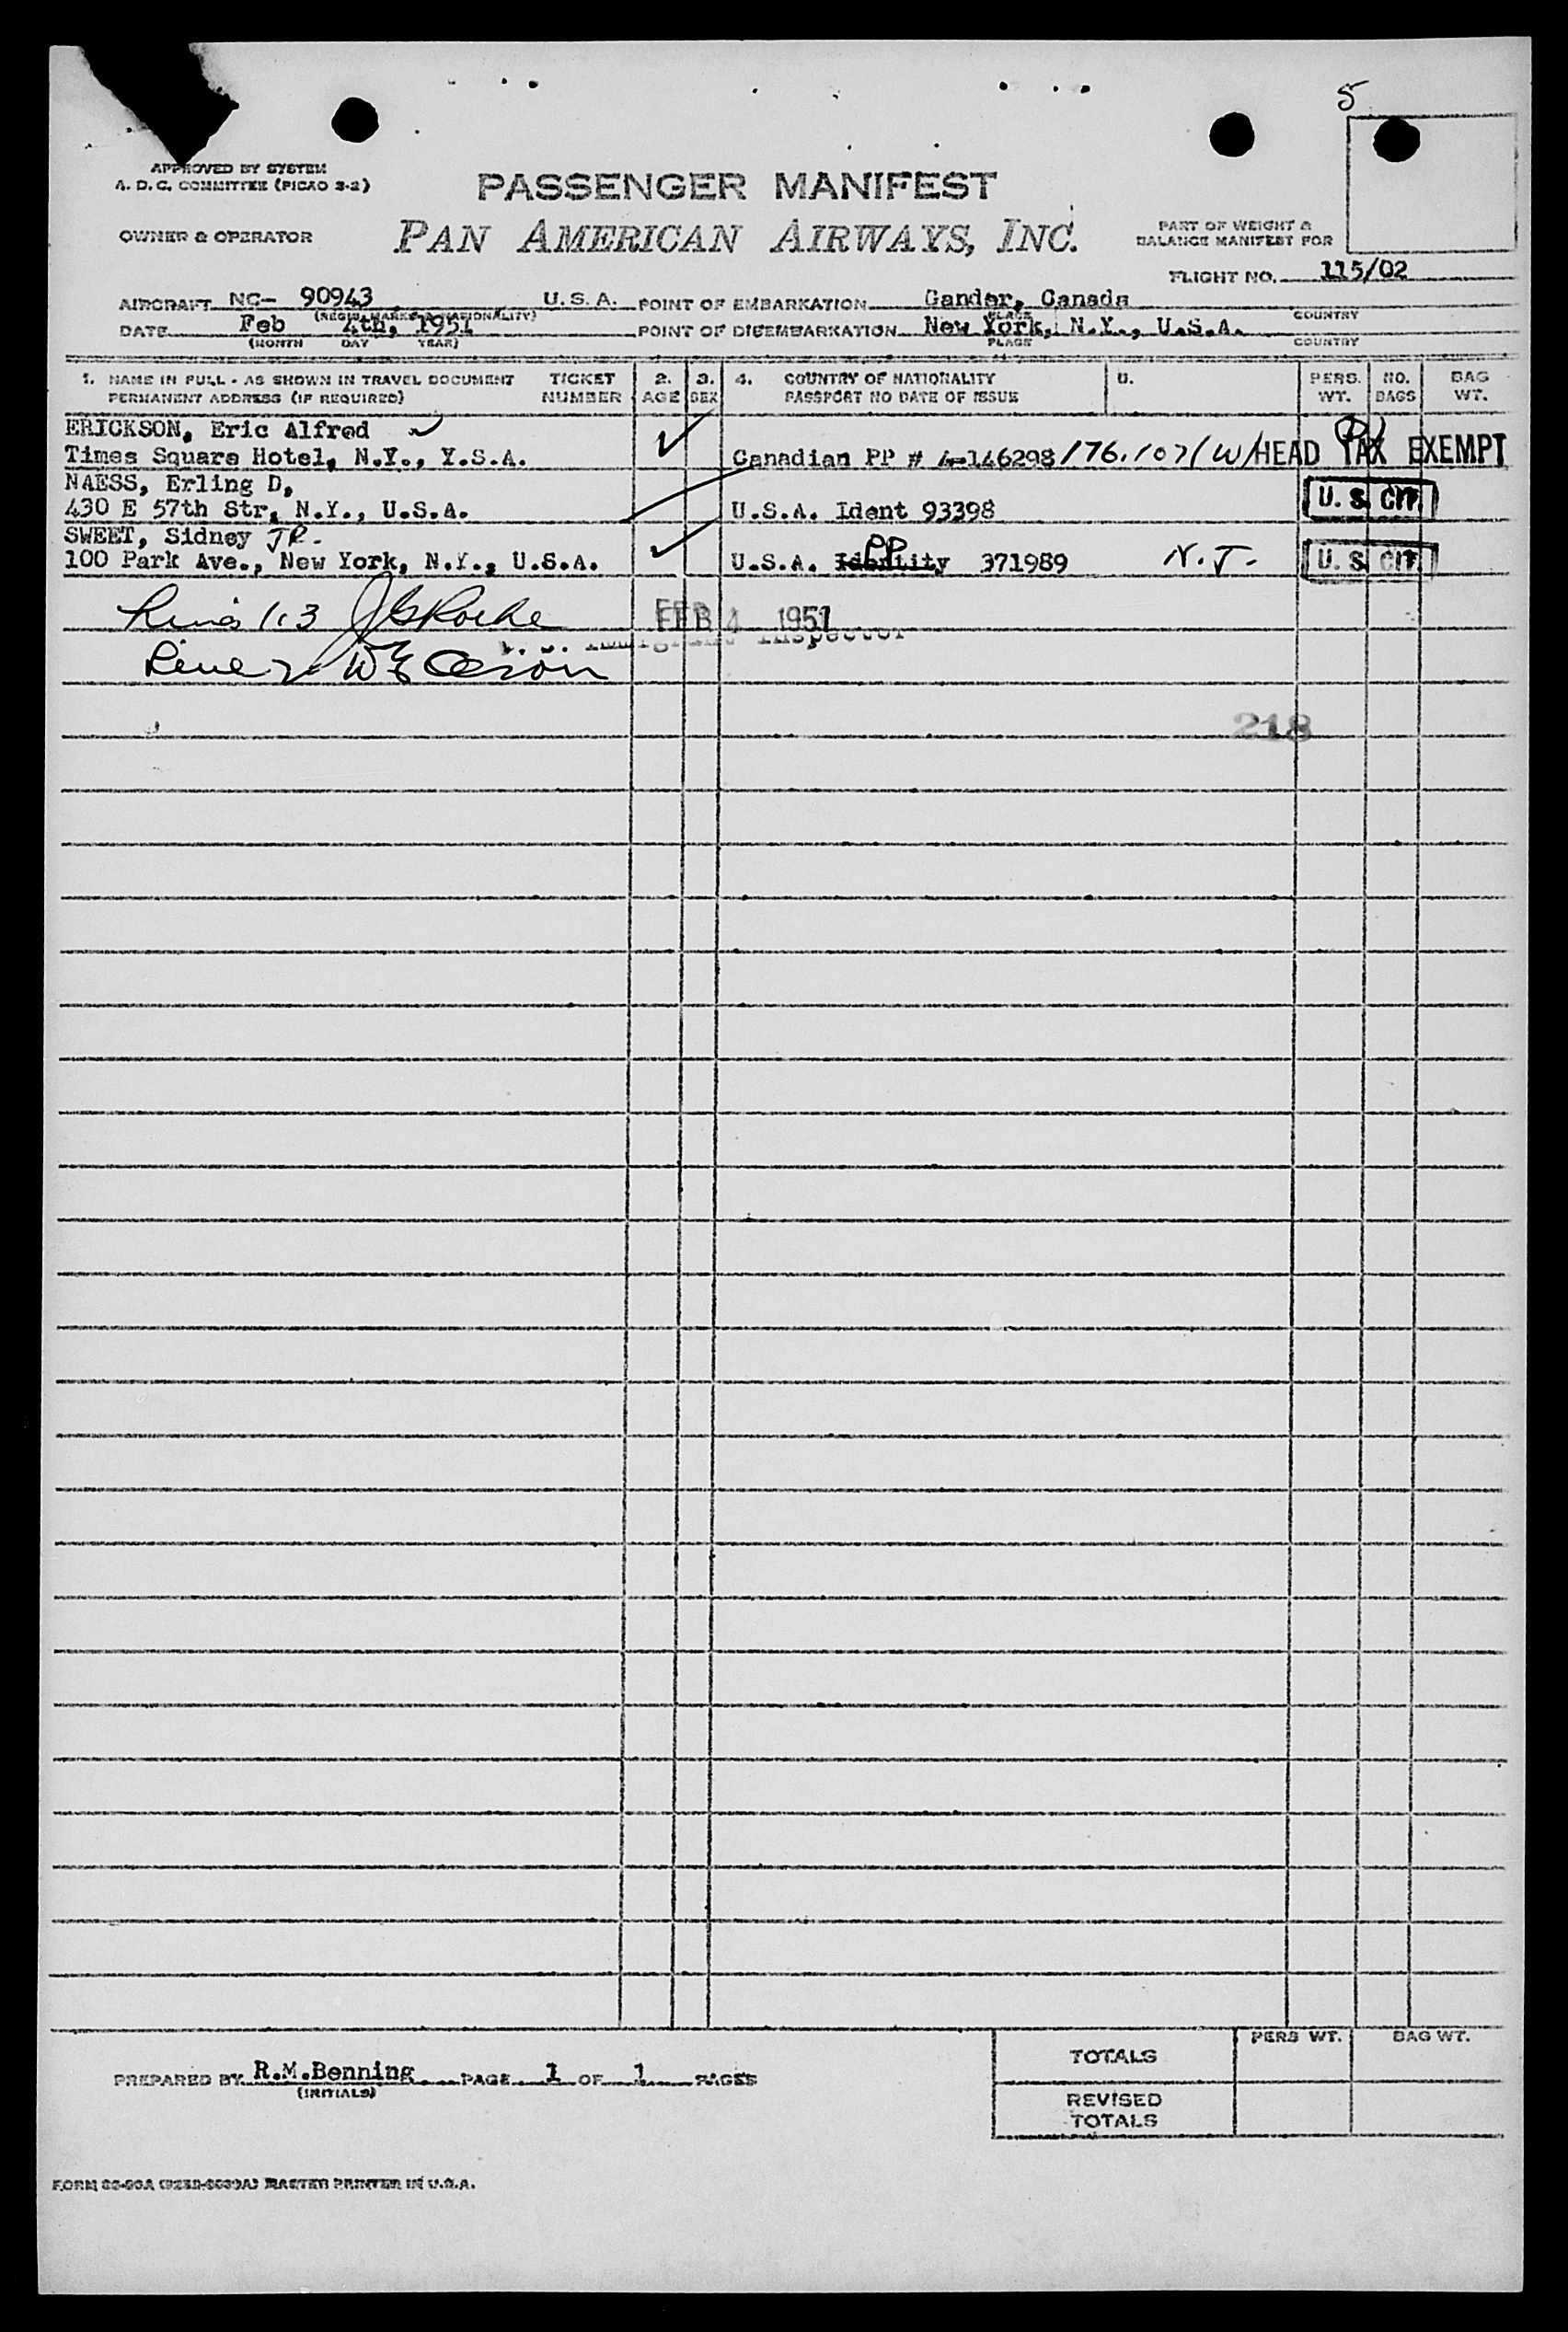 5
APPROVED BY SYSTEM
A. D. C. COMMITTEE (PICAO 3-2)
PASSENGER MANIFEST
OWNER & OPERATOR
PAN AMERICAN AIRWAYS, INC.
PART OF WEIGHT &
BALANCE MANIFEST FOR
FLIGHT NO. 115/02
AIRCRAFT NC- 90943 U.S.A. POINT OF EMBARKATION Gander, Canada
(REGIS. MARKS & NATIONALITY) PLACE COUNTRY
DATE Feb 4th, 1951 POINT OF DISEMBARKATION New York, N.Y., U.S.A.
(MONTH DAY YEAR) PLACE COUNTRY
1. NAME IN FULL - AS SHOWN IN TRAVEL DOCUMENT TICKET 2. 3. 4. COUNTRY OF NATIONALITY PERS. NO. BAG
PERMANENT ADDRESS (IF REQUIRED) NUMBER AGE SEX PASSPORT NO DATE OF ISSUE WT. BAGS WT.
ERICKSON, Eric Alfred
Times Square Hotel, N.Y., Y.S.A. Canadian PP # 4-146298 176.107(W) HEAD TAX EXEMPT
NAESS, Erling D,
430 E 57th Str, N.Y., U.S.A. U.S.A. Ident 93398 U. S. CIT.
SWEET, Sidney JR.
100 Park Ave., New York, N.Y., U.S.A. U.S.A. Identity PP 371989 N.J. U. S. CIT.
FEB 4 1951
Inspector
218
PREPARED BY R.M.Benning PAGE 1 OF 1 PAGES
(INITIALS)
PERS WT. BAG WT.
TOTALS
REVISED
TOTALS
MASTER PRINTER IN U.S.A.